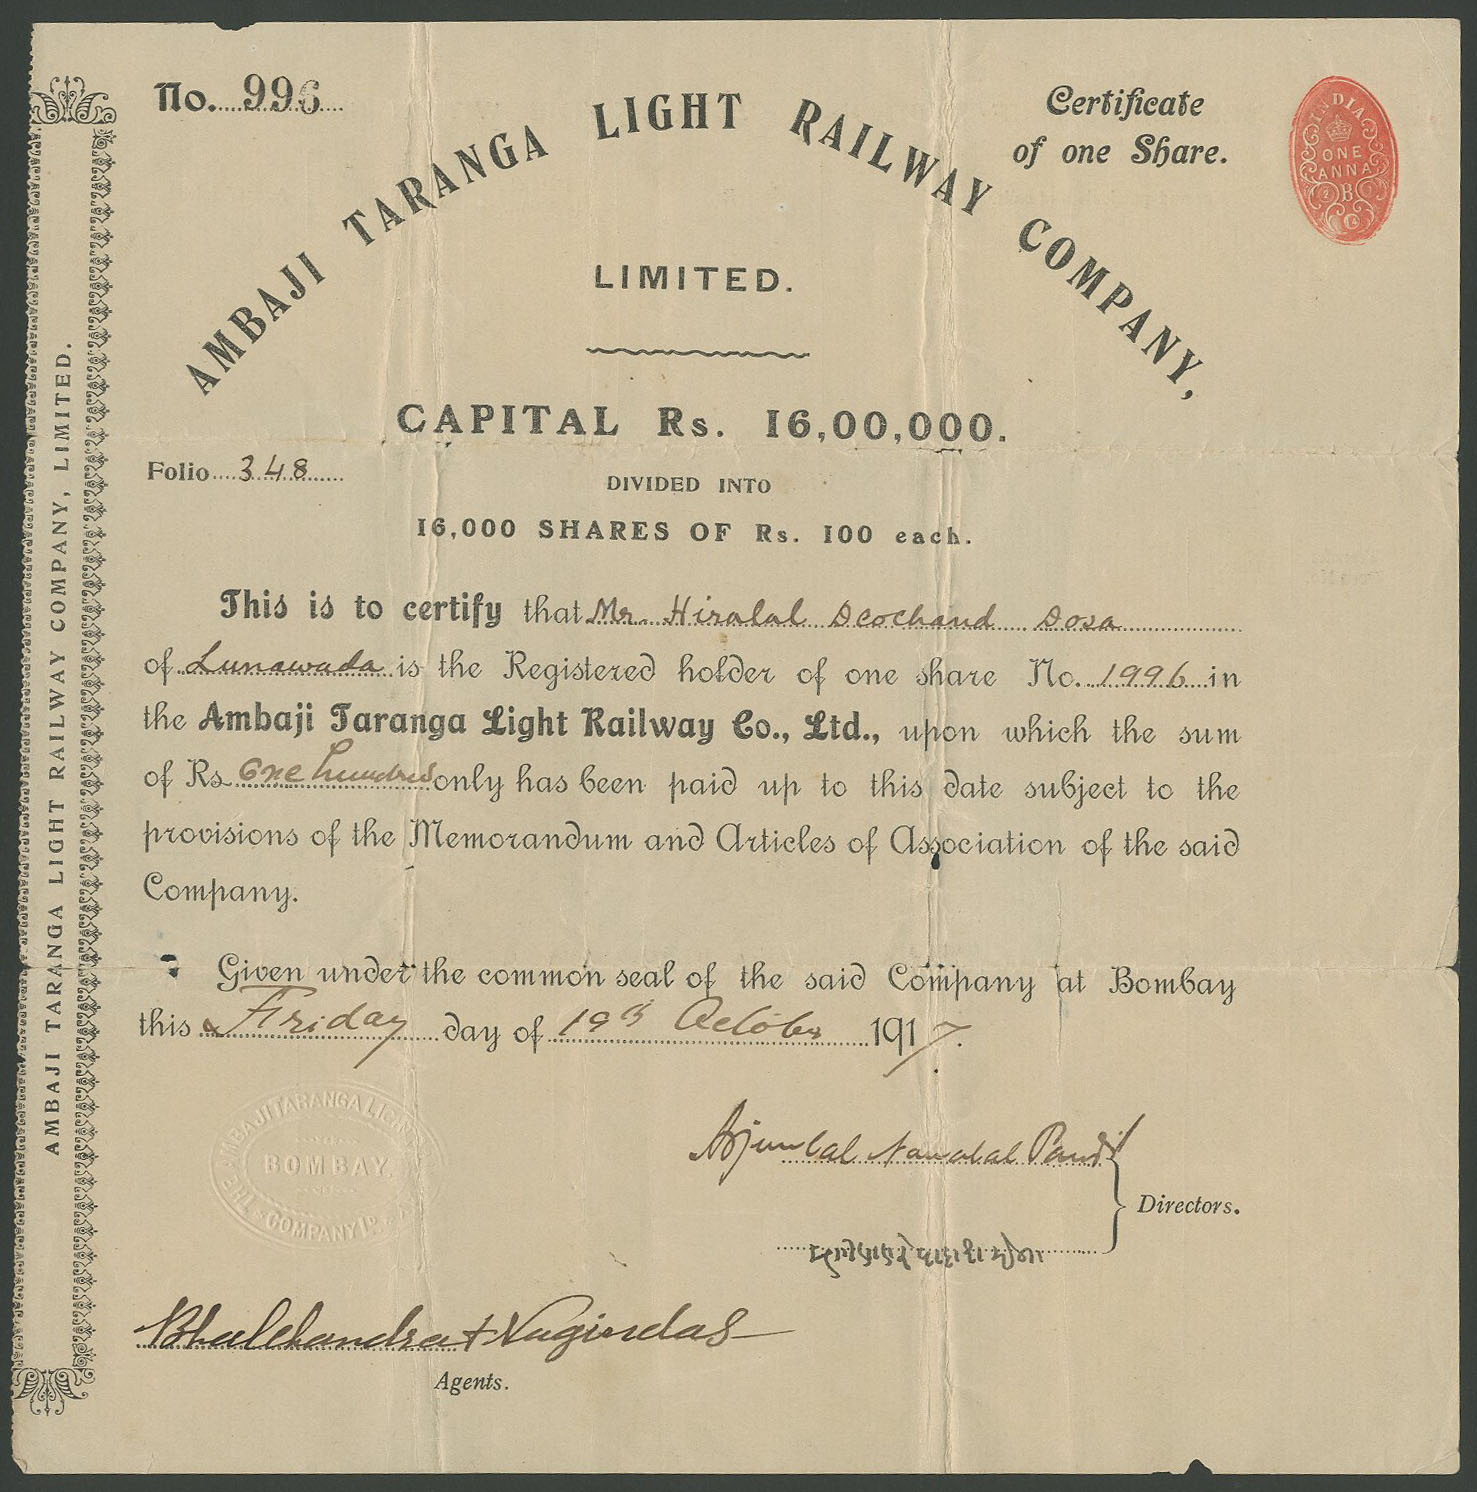 No. 996
Certificate
of one Share.
INDIA
ONE
ANNA
B
AMBAJI TARANGA LIGHT RAILWAY COMPANY,
LIMITED.
CAPITAL Rs. 16,00,000.
Folio 348
DIVIDED INTO
16,000 SHARES OF Rs. 100 each.
This is to certify that Mr. Hiralal Deochand Dosa
of Lunawada is the Registered holder of one share No. 1996 in
the Ambaji Taranga Light Railway Co., Ltd., upon which the sum
of Rs One hundred only has been paid up to this date subject to the
provisions of the Memorandum and Articles of Association of the said
Company.
Given under the common seal of the said Company at Bombay
this Friday day of 19th October 1917.
THE AMBAJI TARANGA LIGHT
BOMBAY
COMPANY LD.
Arjunlal Nandalal Pandit
Directors.
Bhalchandra & Nagindas
Agents.
AMBAJI TARANGA LIGHT RAILWAY COMPANY, LIMITED.